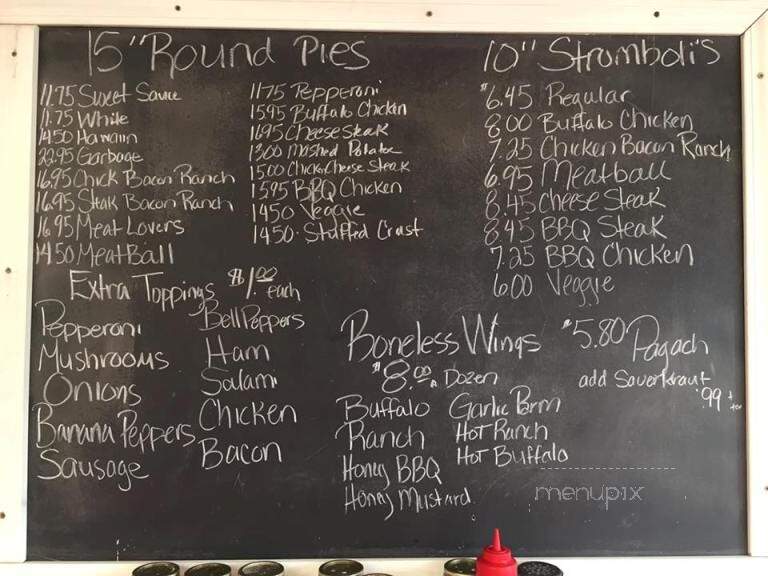 15" Round Pies
11.75 Sweet Sauce
11.75 White
14.50 Hawaiin
22.95 Garbage
16.95 Chick Bacon Ranch
16.95 Steak Bacon Ranch
16.95 Meat Lovers
14.50 MeatBall
11.75 Pepperoni
15.95 Buffalo Chicken
16.95 Cheese Steak
13.00 Mashed Potatoe
15.00 Chick Cheese Steak
15.95 BBQ Chicken
14.50 Veggie
14.50 Stuffed Crust
10" Stromboli's
$6.45 Regular
8.00 Buffalo Chicken
7.25 Chicken Bacon Ranch
6.95 Meatball
8.45 Cheese Steak
8.45 BBQ Steak
7.25 BBQ Chicken
6.00 Veggie
Extra Toppings $1.00 each
Pepperoni
Mushrooms
Onions
Banana Peppers
Sausage
Bell Peppers
Ham
Salami
Chicken
Bacon
Boneless Wings
$8.00 a Dozen
Buffalo
Ranch
Honey BBQ
Honey Mustard
Garlic Parm
Hot Ranch
Hot Buffalo
$5.80 Pagach
add Sauerkraut
.99
menupix